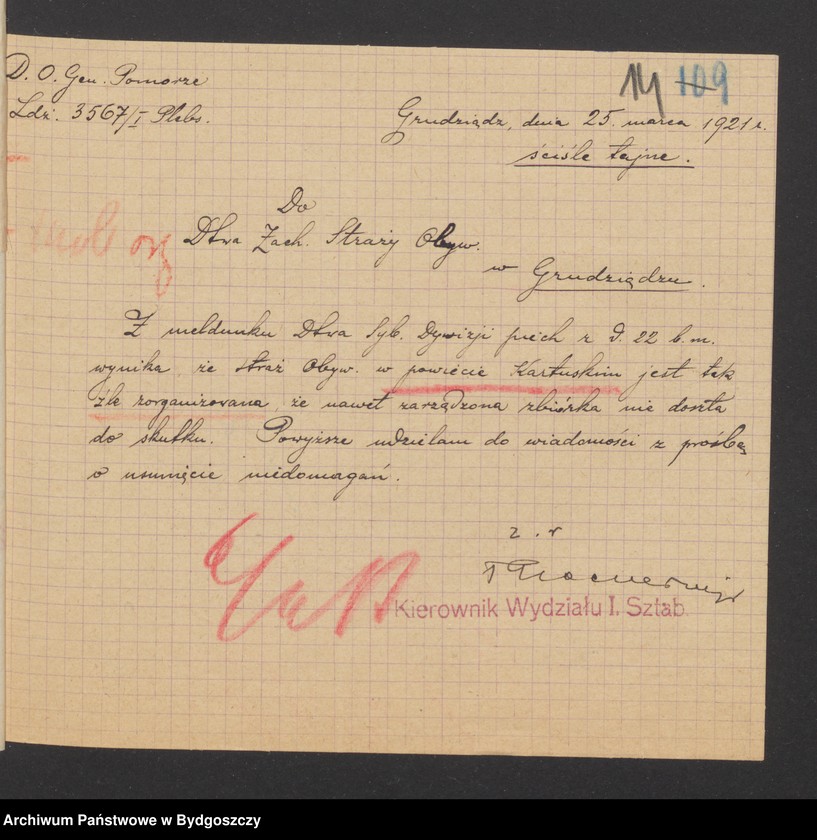 D. O. Gen. Pomorze
Ldz. 3567/I Plebs.
14 109
Grudziądz, dnia 25. marca 1921 r.
ściśle tajne.
Do
Dtwa Zach. Straży Obyw.
w Grudziądzu.
Z meldunku Dtwa Syb. Dywizji piech z d. 22 b. m.
wynika, że straż Obyw. w powiecie Kartuskim jest tak
źle zorganizowana, że nawet zarządzona zbiórka nie doszła
do skutku. Powyższe udzielam do wiadomości z prośbą
o usunięcie niedomagań.
z. r
Kierownik Wydziału I. Sztab.
Archiwum Państwowe w Bydgoszczy